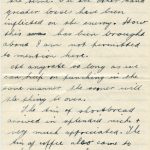 greater losses have been
inflicted on the enemy. How
this was has been brought
about I am not permitted
to mention here.
At anyrate as long as we
can keep on punching in the
same manner the sooner will
the place be ours.
The tin of shortbread
arrived in splendid nick &
very much appreciated. The
tin of coffee also came to